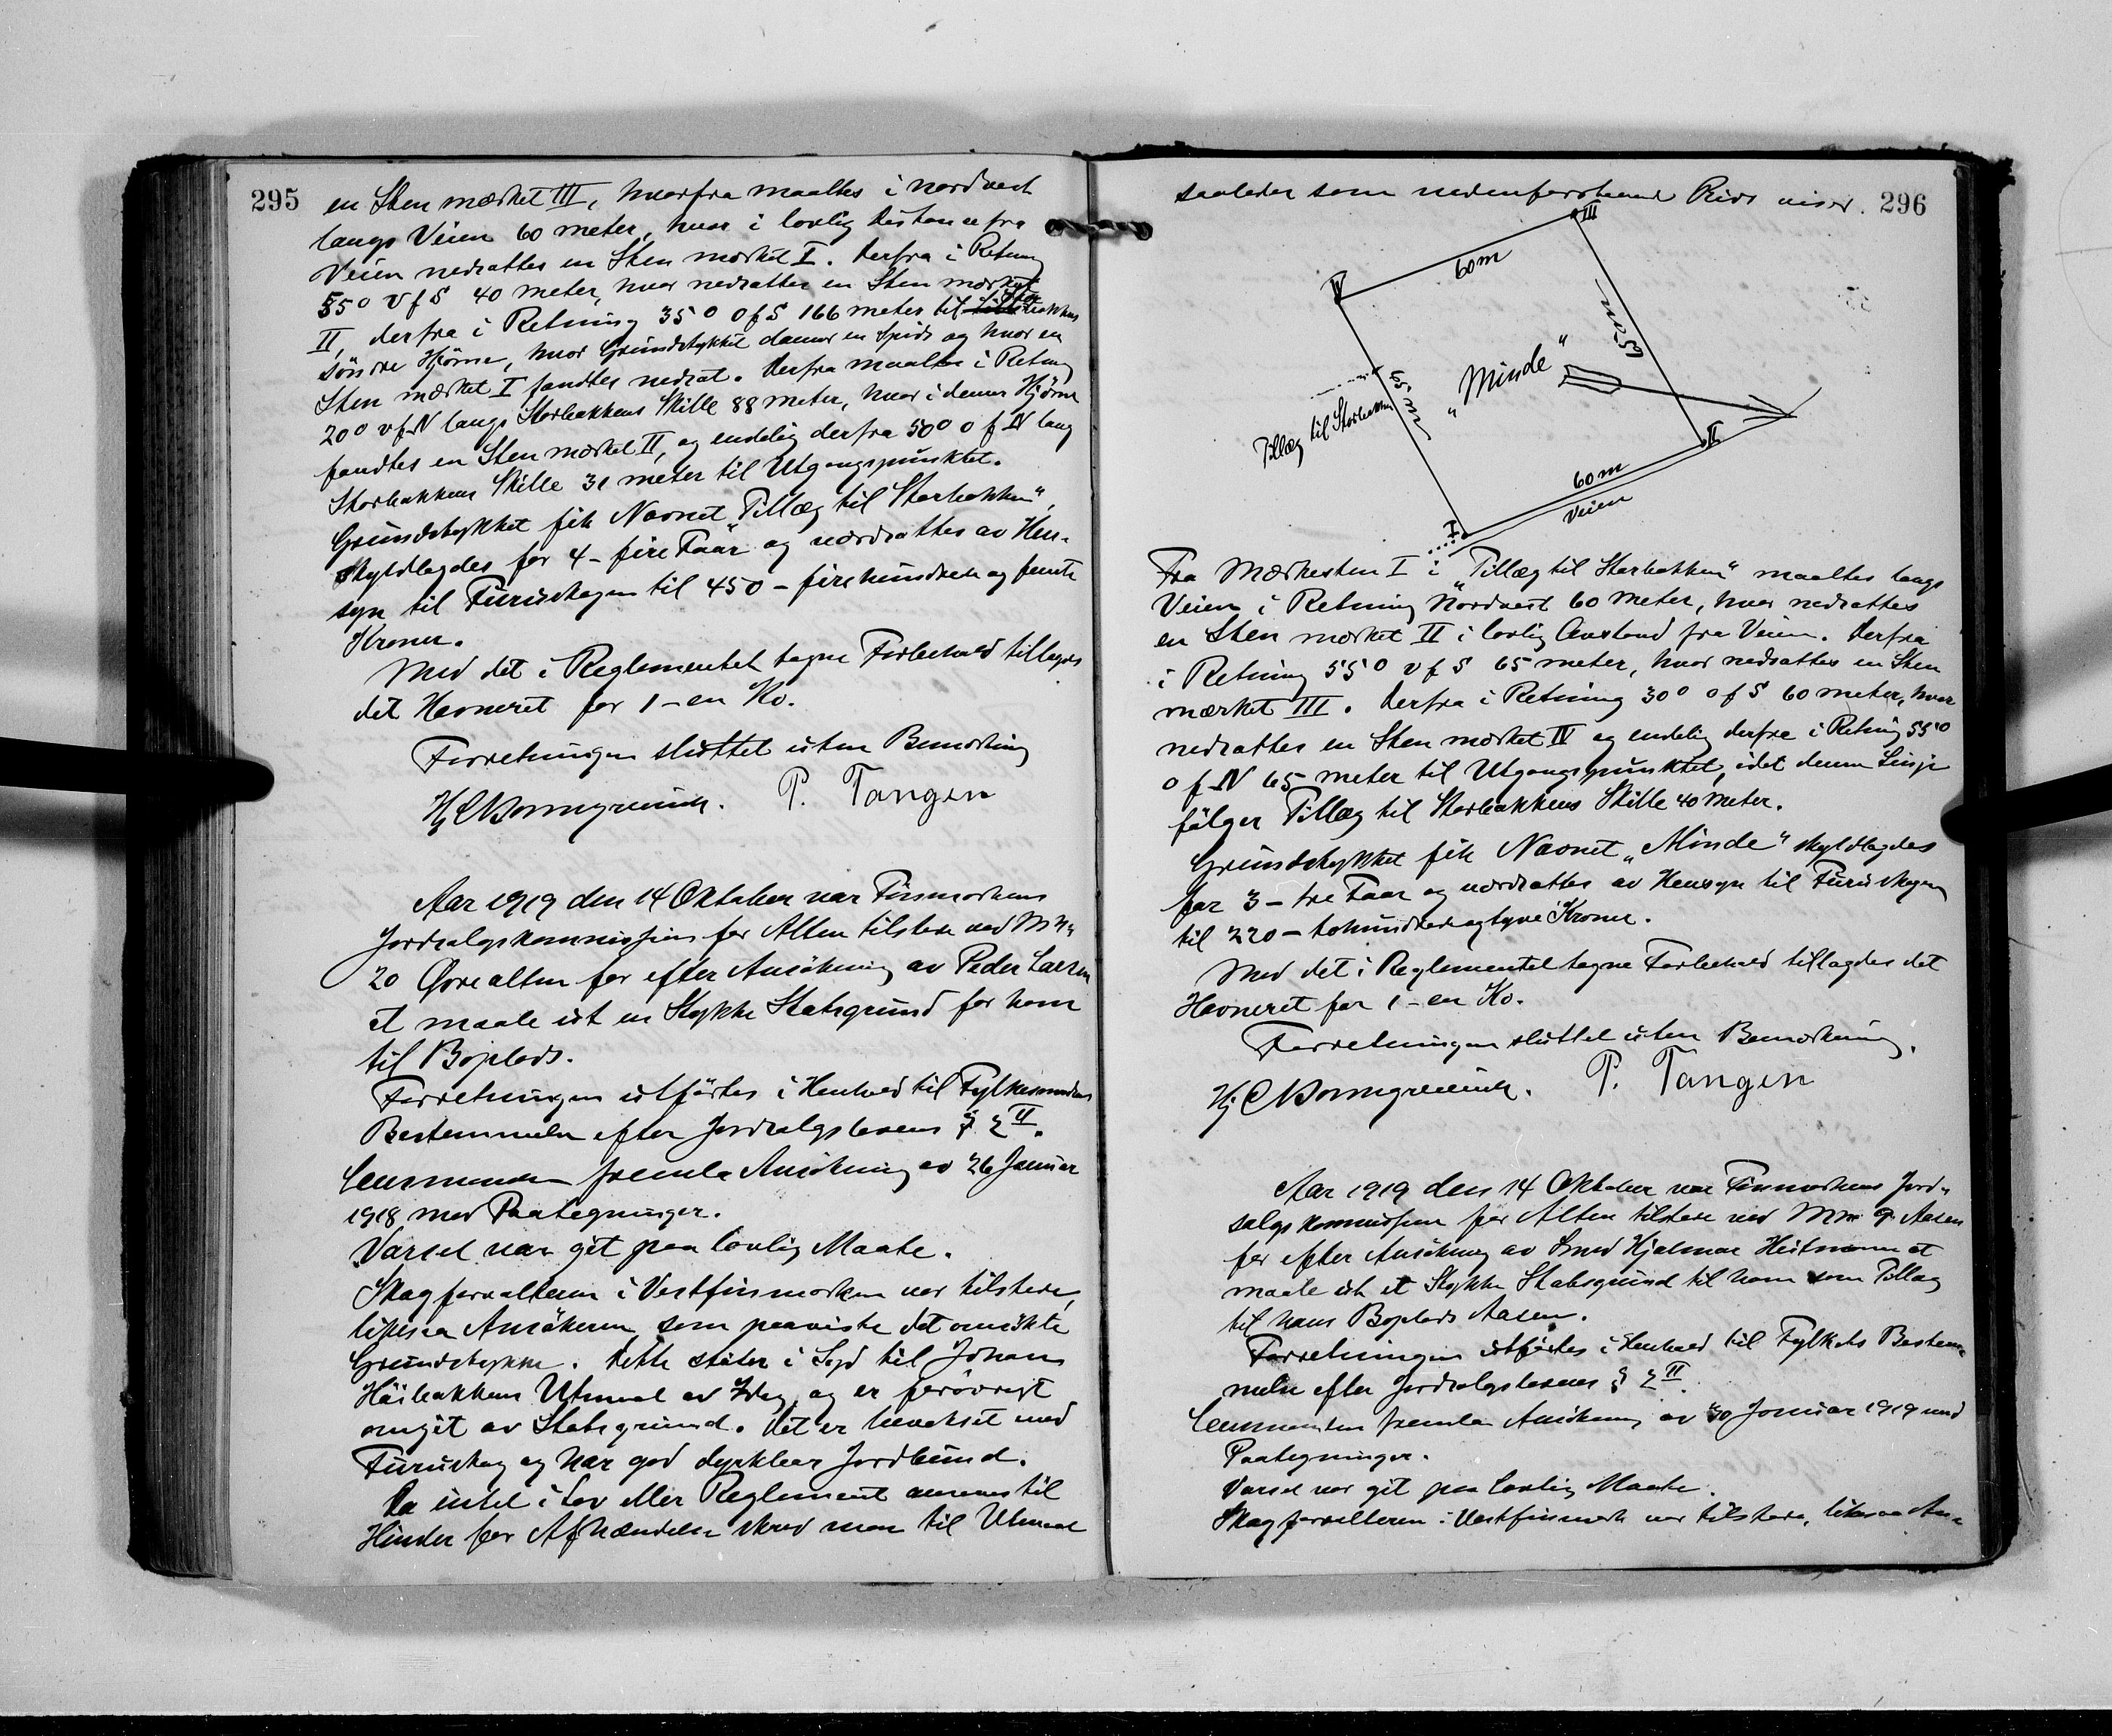 295
en Sten mærket III, hvorfra maaltes i nordvest
langs Veien 60 meter, hvor i lovlig Distance fra
Veien nedsattes en Sten mærket I. Derfra i Retning
55° V f S 40 meter, hvor nedsattes en Sten mærket
II, derfra i Retning 35° O f S 166 meter til Storbakkens
söndre Hjörne, hvor Grundstykket danner en Spids og hvor en
Sten mærket I fandtes nedsat. Derfra maaltes i Retning
20° v f N langs Storbakkens Skille 88 meter, hvor i dennes Hjörne
fandtes en Sten mærket II, og endelig derfra 50° o f N langs
Storbakkens Skille 31 meter til Utgangspunktet.
Grundstykket fik Navnet „Tillæg til Storbakken“,
skyldlagdes for 4 - fire Faar og værdsattes av Hen-
syn til Furuskogen til 450 - firehundrede og femti
Kroner.
Med det i Reglementet tagne Forbehold tillagdes
det Havneret for 1 - en Ko.
Forretningen sluttet uten Bemærkning
P. Tangen
Aar 1919 den 14 Oktober var Finmarkens
Jordsalgskommission for Alten tilstede ved M n:
20 Övrealten for efter Ansökning av Peder Larsen
at maale ut en Stykke Statsgrund for ham
til Boplads.
Forretningen utförtes i Henhold til Fylkesmandens
Bestemmelse efter Jordsalgslovens § 2 II.
Lensmanden fremla Ansökning av 26 Januar
1918 med Paategninger.
Varsel var git paa lovlig Maate.
Skogforvalteren i Vestfinmarken var tilstede,
likesaa Ansökeren som paaviste det omsökte
Grundstykke. Dette stöter i Syd til Johan
Häibakkens Utmaal av Idag og er forövrigt
omgit av Statsgrund. Det er bevokset med
Furuskog og har god dyrkbar Jordbund.
Da intet i Lov eller Reglement ansaaes til
Hinder for Afhændelse skred man til Utmaal
296
saaledes som nedenforstaaende Rids viser.
III
60 m
IV
65 m
„Minde“
65 m
Tillæg til Storbakken
II
60 m
Veien
I
Fra Mærkesten I i „Tillæg til Storbakken“ maaltes langs
Veien i Retning Nordvest 60 Meter, hvor nedsattes
en Sten mærket II i lovlig Avstand fra Veien. Derfra
i Retning 55° v f S 65 meter, hvor nedsattes en Sten
mærket III. Derfra i Retning 30° o f S 60 meter, hvor
nedsattes en Sten mærket IV og endelig derfra i Retning 55°
o f N 65 meter til Utgangspunktet, idet denne Linje
fölger Tillæg til Storbakkens Skille 40 Meter.
Grundstykket fik Navnet „Minde“ skyldlagdes
for 3 - tre Faar og værdsattes av Hensyn til Furuskogen
til 220 - tohundredeogtyve Kroner.
Med det i Reglementet tagne Forbehold tillagdes det
Havneret for 1 - en Ko.
Forretningen sluttet uten Bemærkning.
P. Tangen
Aar 1919 den 14 Oktober var Finmarkens Jord-
salgskommission for Alten tilstede ved M nr 9 Aasen
for efter Ansökning av Smed Hjalmar Heitmann at
maale ut et Stykke Statsgrund til ham som Tillæg
til hans Boplads Aasen.
Forretningen utförtes i Henhold til Fylkets Bestem-
melse efter Jordsalgslovens § 2 II.
Lensmanden fremla Ansökning av 30 Januar 1919 med
Paategninger.
Varsel var git paa lovlig Maate.
Skogforvalteren i Vestfinmark var tilstede, likesaa An-